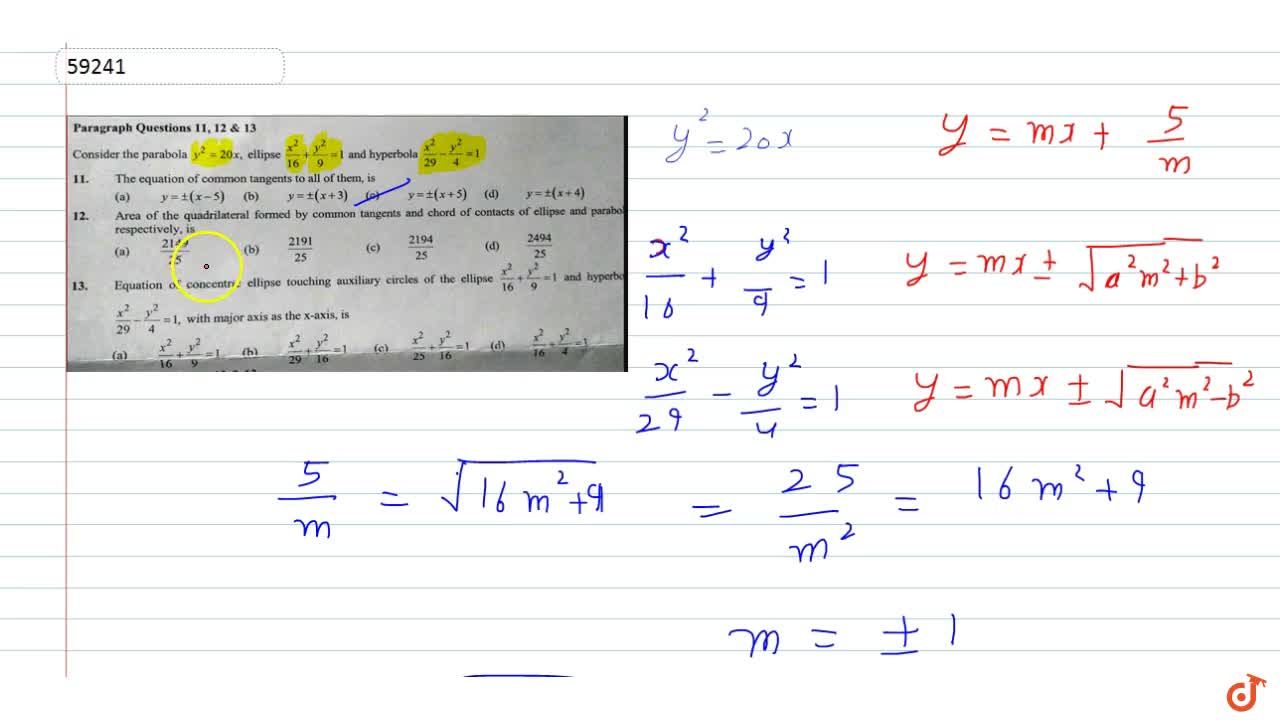 59241
Paragraph Questions 11, 12 & 13
Consider the parabola y² = 20x, ellipse x²/16 + y²/9 = 1 and hyperbola x²/29 − y²/4 = 1
11. The equation of common tangents to all of them, is
(a) y = ±(x − 5) (b) y = ±(x + 3) (c) y = ±(x + 5) (d) y = ±(x + 4)
12. Area of the quadrilateral formed by common tangents and chord of contacts of ellipse and parabol
respectively, is
(a) (b) 2191/25 (c) 2194/25 (d) 2494/25
13. Equation of concentric ellipse touching auxiliary circles of the ellipse x²/16 + y²/9 = 1 and hyperbo
x²/29 − y²/4 = 1, with major axis as the x-axis, is
(a) x²/16 + y²/9 = 1 (b) x²/29 + y²/16 = 1 (c) x²/25 + y²/16 = 1 (d) x²/16 + y²/4 = 1
y² = 20x
y = mx + 5/m
x²/16 + y²/9 = 1
y = mx ± √(a²m² + b²)
x²/29 − y²/4 = 1
y = mx ± √(a²m² − b²)
5/m = √(16m² + 9) = 25/m² = 16m² + 9
m = ± 1